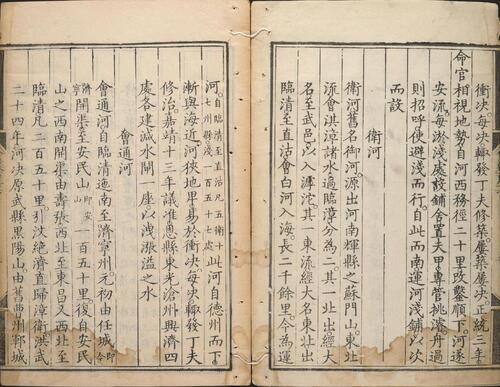 衝決每決輙發丁夫修築屢築屢決正統三年
命官相視地勢自河西務徑二十里改鑿順下河遂
安流每淤淺處設鋪舎置夫甲專管挑濬舟過
則招呼使避淺而行自此而南運河淺鋪以次
而設
衛河
衛河舊名御河源出河南輝縣之蘇門山東北
流會淇漳諸水過臨漳分為二其一北出經大
名至武邑以入滹沱其一東流經大名東北出
臨清至直沽會白河入海長二千餘里今為運
河自臨清至直沽凡五衛十七州縣淺一百五十七處此河自德州而下
漸與海近河狹地卑易於衝決每決輙發丁夫
修治嘉靖十三年議准恩縣東光滄州興濟四
處各建減水閘一座以洩漲溢之水
會通河
會通河自臨清迤南至濟寧州元初由任城即今
濟寧州開渠至安民山即安山一百五十里復自安民
山之西南開渠由壽張西北至東昌又西北至
臨清凡二百五十里引汶絶濟直歸漳衛洪武
二十四年河決原武縣黒陽山由舊曹州鄆城